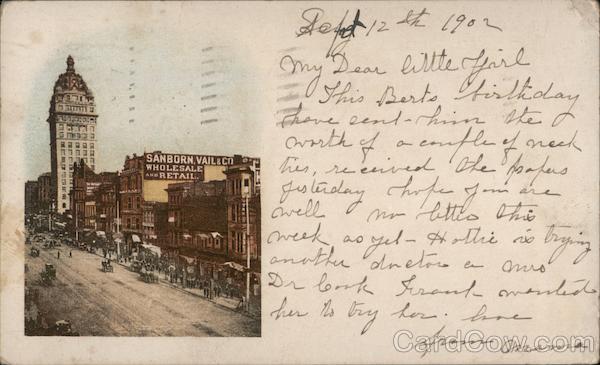 Sept 12th 1902
My Dear little Girl
This Berts birthday
have sent him the
worth of a couple of neck
ties, received the papers
yesterday hope you are
well no letter this
week as yet - Hattie is trying
another doctor a Mrs
Dr Cook Frank wanted
her to try her. love
from
SANBORN, VAIL & CO.
WHOLESALE
AND RETAIL.
CardCow.com